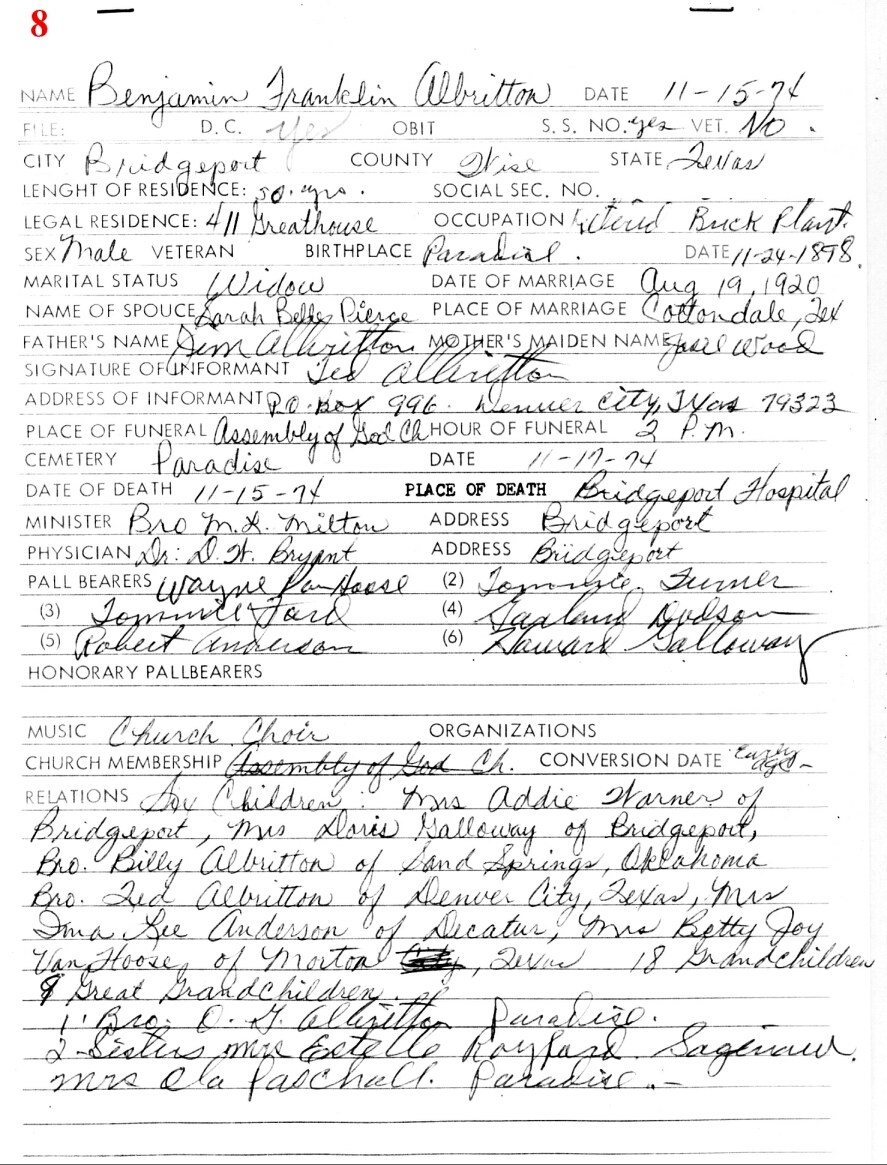 8
NAME Benjamin Franklin Albritton DATE 11-15-74
FILE: D.C. yes OBIT S.S. NO. yes VET. NO.
CITY Bridgeport COUNTY Wise STATE Texas
LENGHT OF RESIDENCE: 50. yrs. SOCIAL SEC. NO.
LEGAL RESIDENCE: 411 Greathouse OCCUPATION Retired Brick Plant.
SEX Male VETERAN BIRTHPLACE Paradise. DATE 11-24-1898.
MARITAL STATUS Widow DATE OF MARRIAGE Aug 19, 1920
NAME OF SPOUCE Sarah Belle Pierce PLACE OF MARRIAGE Cottondale, Tex
FATHER'S NAME Jim Albritton MOTHER'S MAIDEN NAME Wood
SIGNATURE OF INFORMANT Ted Albritton
ADDRESS OF INFORMANT P.O. Box 996. Denver City, Texas 79323
PLACE OF FUNERAL Assembly of God Ch HOUR OF FUNERAL 2 P.M.
CEMETERY Paradise DATE 11-17-74
DATE OF DEATH 11-15-74 PLACE OF DEATH Bridgeport Hospital
MINISTER Bro M.K. Milton ADDRESS Bridgeport
PHYSICIAN Dr: D.W. Bryant ADDRESS Bridgeport
PALL BEARERS Wayne VanHoose (2) Tommie Turner
(3) Tommie Ford (4) Garland Dodson
(5) Robert Anderson (6) Howard Galloway
HONORARY PALLBEARERS
MUSIC Church Choir ORGANIZATIONS
CHURCH MEMBERSHIP Assembly of God Ch. CONVERSION DATE Early age-
RELATIONS Six Children: Mrs Addie Warner of
Bridgeport, Mrs Doris Galloway of Bridgeport,
Bro. Billy Albritton of Sand Springs, Oklahoma
Bro. Ted Albritton of Denver City, Texas, Mrs
Ima Lee Anderson of Decatur, Mrs Betty Joy
Van Hoose, of Morton City, Texas 18 Grandchildren
9 Great Grandchildren.
1. Bro. O.G. Albritton Paradise.
2-Sisters Mrs Estelle Rayford Saginaw.
Mrs Ola Paschall. Paradise.-